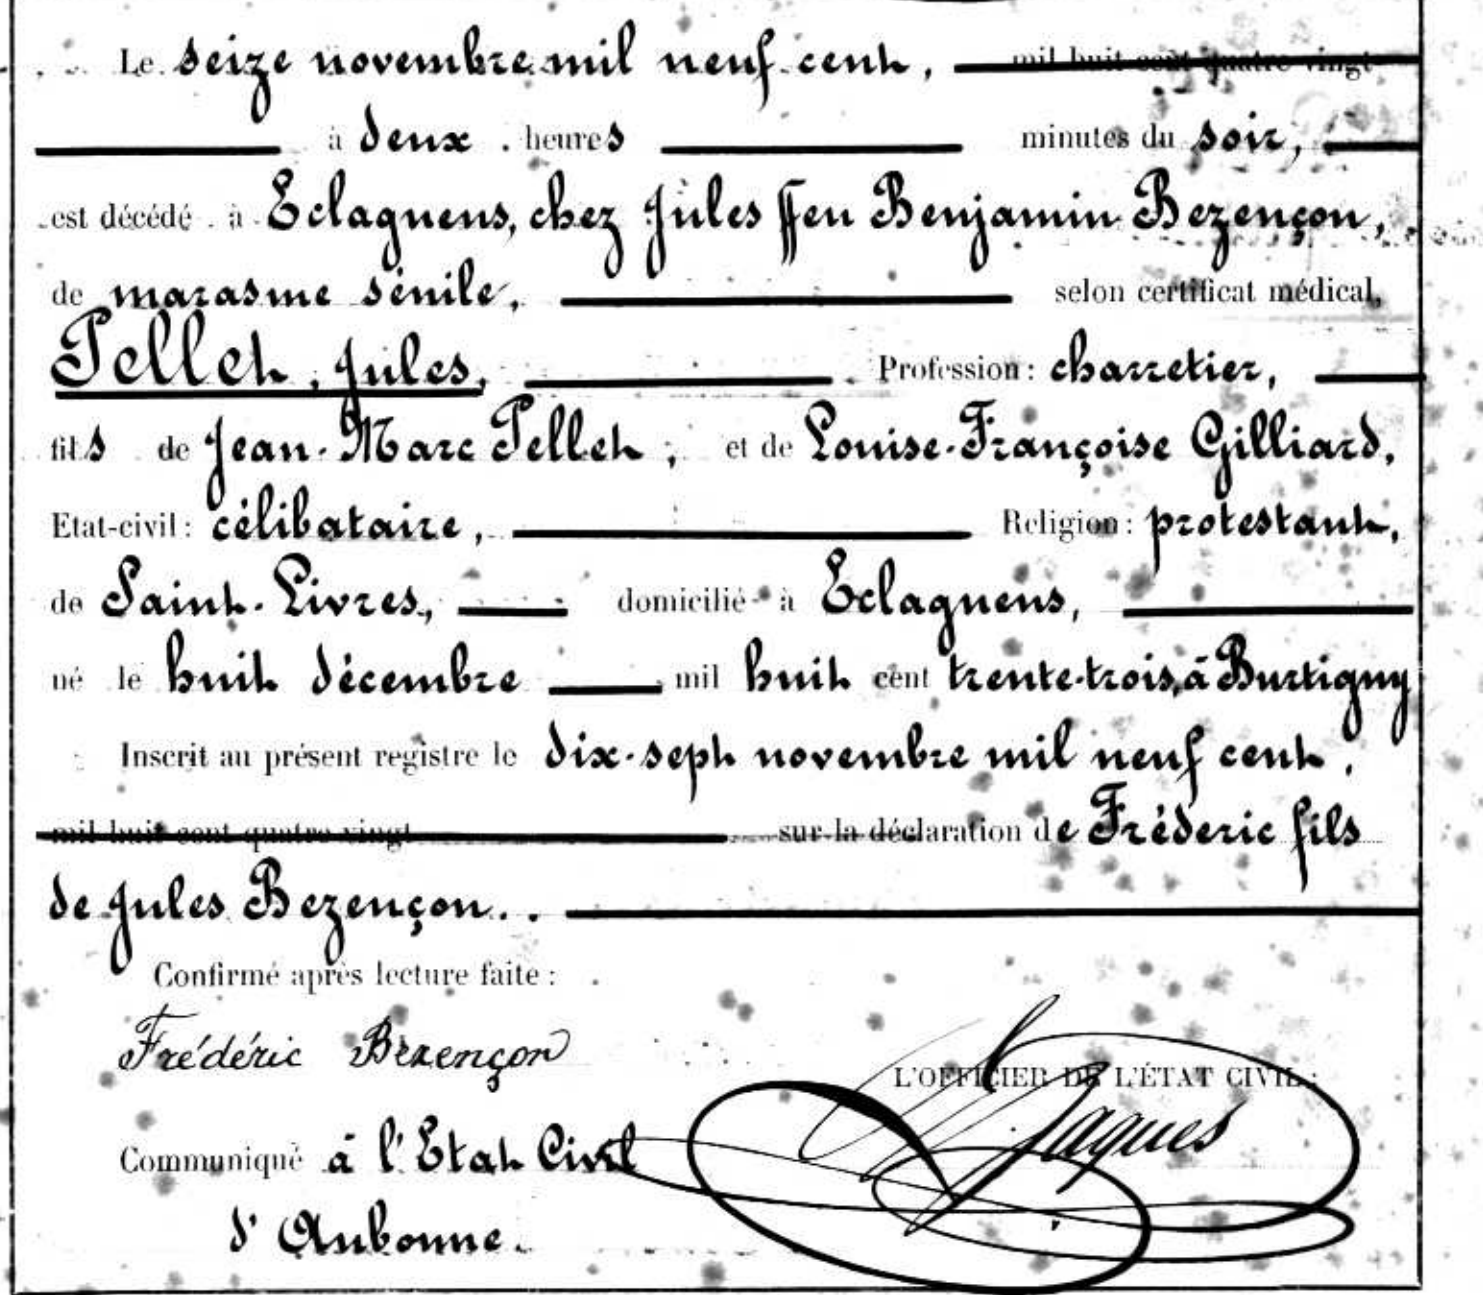 Le seize novembre mil neuf cent, mil huit cent quatre vingt
à deux heures minutes du soir,
est décédé à Eclagnens, chez Jules ffeu Benjamin Bezençon,
de marasme sénile, selon certificat médical,
Pellet, Jules, Profession : charretier,
fils de Jean-Marc Pellet, et de Louise-Françoise Gilliard,
Etat-civil : célibataire, Religion : protestant,
de Saint-Livres, domicilié à Eclagnens,
né le huit décembre mil huit cent trente-trois, à Burtigny
Inscrit au présent registre le dix-sept novembre mil neuf cent,
mil huit cent quatre vingt sur la déclaration de Fréderic fils
de Jules Bezençon..
Confirmé après lecture faite :
Frédéric Bezençon
L'OFFICIER DE L'ÉTAT CIVIL :
Jaques
Communiqué à l'Etat Civil
d'Aubonne.